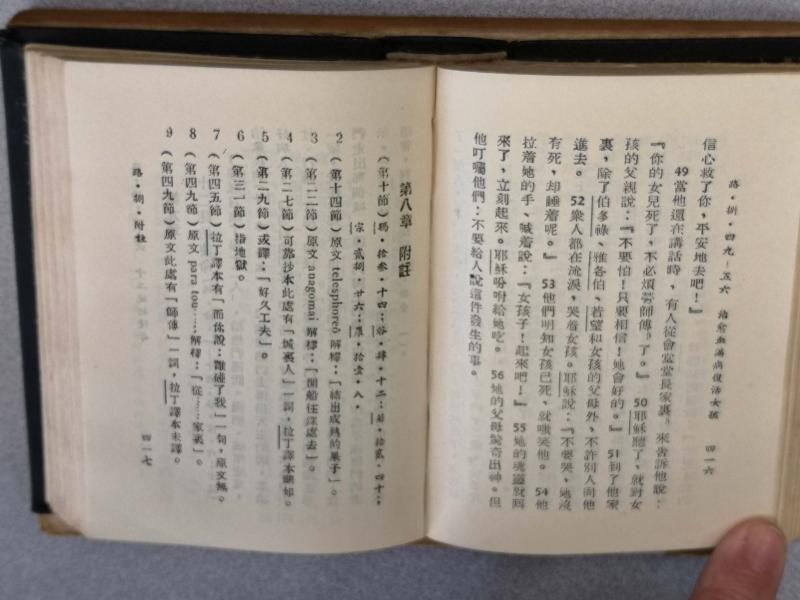 路·捌·四九—五六 治愈血漏病復活女孩 四一六
信心救了你，平安地去吧！』
49當他還在講話時，有人從會堂堂長家裏⁸來告訴他說：
『你的女兒死了，不必煩勞師傅⁹了。』50耶穌聽了，就對女
孩的父親說：『不要怕！只要相信！她會好的。』51到了他家
裏，除了伯多祿、雅各伯、若望和女孩的父母外，不許別人同他
進去。52衆人都在流淚，哭着女孩。耶穌說：『不要哭，她沒
有死，却睡着呢。』53他們明知女孩已死，就嗤笑他。54他
拉着她的手、喊着說：『女孩子！起來吧！』55她的魂靈就回
來了，立刻起來。耶穌吩咐給她吃。56她的父母驚奇出神。但
他叮囑他們：不要給人說這件發生的事。
第八章 附註
（第十節）瑪·拾叁·十四；谷·肆·十二；若·拾貳·四十；
宗·貳捌·廿六；羅·拾壹·八。
2（第十四節）原文 telesphoreō 解釋：『結出成熟的果子』。
3（第二二節）原文 anagomai 解釋：『開船往深處去』。
4（第二七節）可靠抄本此處有『城裏人』一詞，拉丁譯本闕如。
5（第二九節）或譯：『好久工夫』。
6（第三一節）指地獄。
7（第四五節）拉丁譯本有『而你說：誰碰了我』一句，原文無。
8（第四九節）原文 para tou…… 解釋：『從……家裏』。
9（第四九節）原文此處有『師傅』一詞，拉丁譯本未譯。
路·捌·附註 四一七